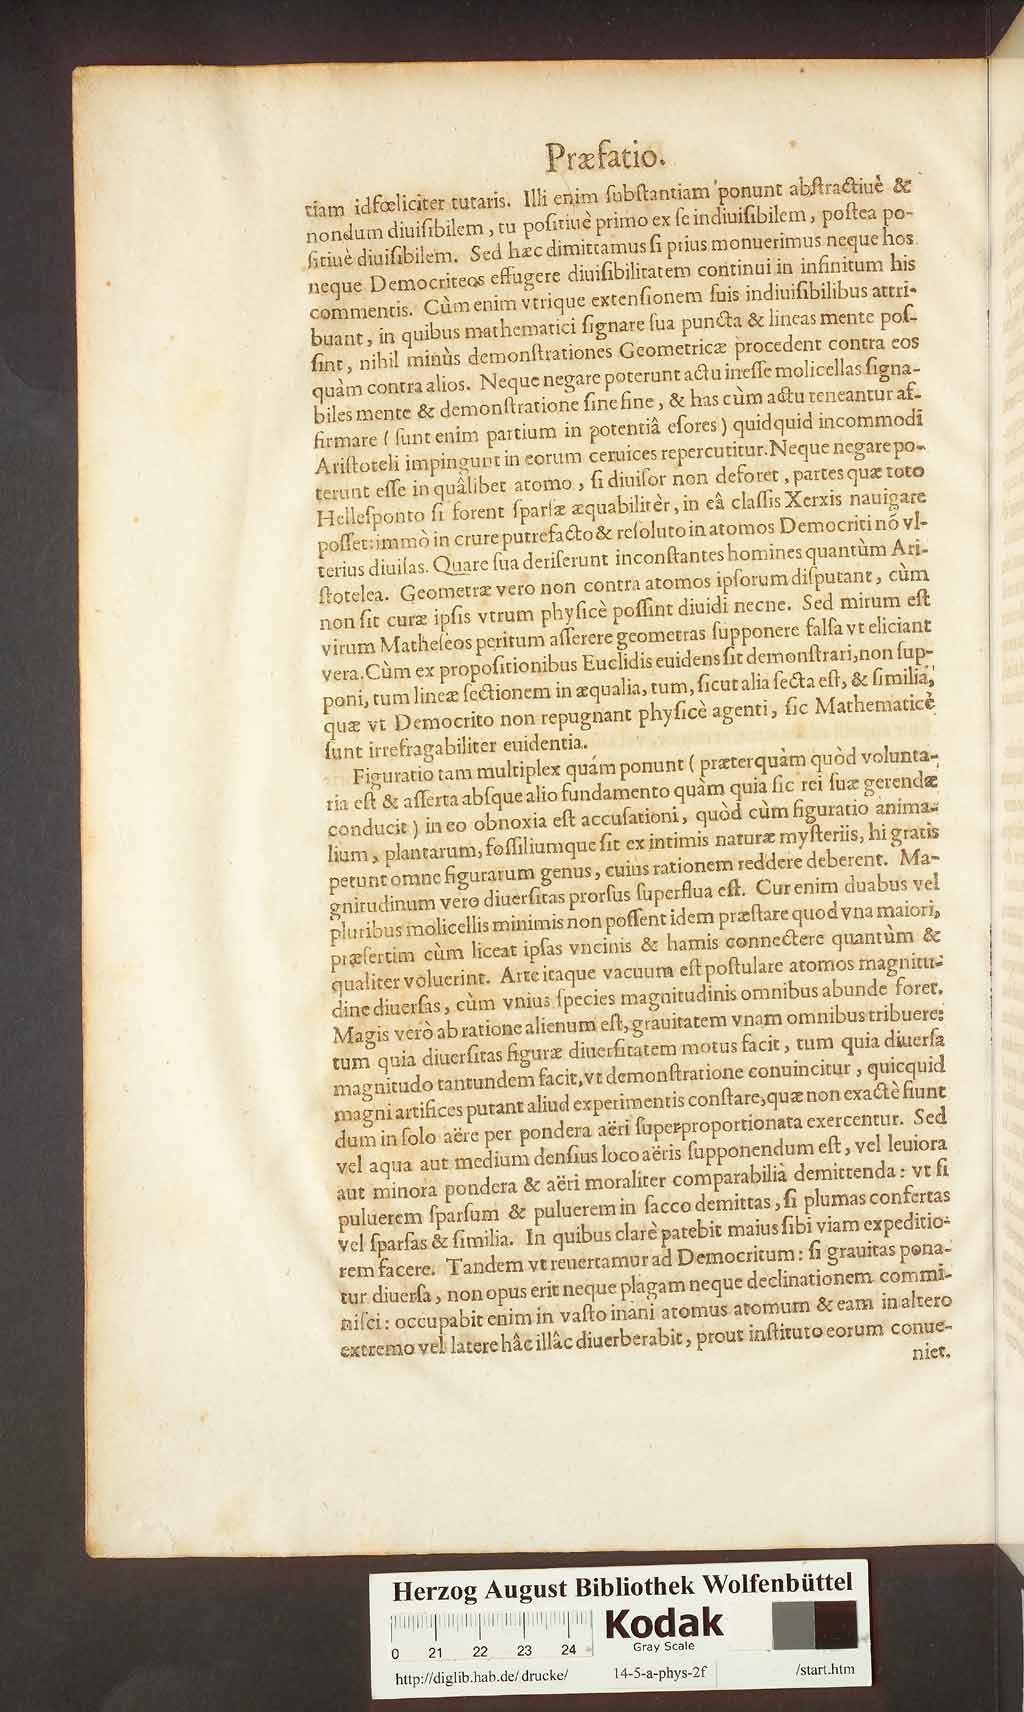 Præfatio.
tiam id fœliciter tutaris. Illi enim ſubſtantiam ponunt abſtractiuè &
nondum diuiſibilem, tu poſitiuè primo ex ſe indiuiſibilem, poſtea po-
ſitiuè diuiſibilem. Sed hæc dimittamus ſi prius monuerimus neque hos
neque Democriteos effugere diuiſibilitatem continui in infinitum his
commentis. Cùm enim vtrique extenſionem ſuis indiuiſibilibus attri-
buant, in quibus mathematici ſignare ſua puncta & lineas mente poſ-
ſint, nihil minùs demonſtrationes Geometricæ procedent contra eos
quàm contra alios. Neque negare poterunt actu ineſſe molicellas ſigna-
biles mente & demonſtratione ſine fine, & has cùm actu teneantur af-
firmare (ſunt enim partium in potentiâ eſores) quidquid incommodi
Ariſtoteli impingunt in eorum ceruices repercutitur. Neque negare po-
terunt eſſe in quâlibet atomo, ſi diuiſor non deforet, partes quæ toto
Helleſponto ſi forent ſparſæ æquabilitèr, in eâ claſſis Xerxis nauigare
poſſet: immò in crure putrefacto & reſoluto in atomos Democriti nõ vl-
terius diuiſas. Quare ſua deriſerunt inconſtantes homines quantùm Ari-
ſtotelea. Geometræ vero non contra atomos ipſorum diſputant, cùm
non ſit curæ ipſis vtrum phyſicè poſſint diuidi necne. Sed mirum eſt
virum Matheſeos peritum aſſerere geometras ſupponere falſa vt eliciant
vera. Cùm ex propoſitionibus Euclidis euidens ſit demonſtrari, non ſup-
poni, tum lineæ ſectionem in æqualia, tum, ſicut alia ſecta eſt, & ſimilia,
quæ vt Democrito non repugnant phyſicè agenti, ſic Mathematicè
ſunt irrefragabiliter euidentia.
Figuratio tam multiplex quám ponunt (præterquàm quòd volunta-
ria eſt & aſſerta abſque alio fundamento quàm quia ſic rei ſuæ gerendæ
conducit) in eo obnoxia eſt accuſationi, quòd cùm figuratio anima-
lium, plantarum, foſſiliumque ſit ex intimis naturæ myſteriis, hi gratis
petunt omne figurarum genus, cuius rationem reddere deberent. Ma-
gnitudinum vero diuerſitas prorſus ſuperflua eſt. Cur enim duabus vel
pluribus molicellis minimis non poſſent idem præſtare quod vna maiori,
præſertim cùm liceat ipſas vncinis & hamis connectere quantùm &
qualiter voluerint. Arte itaque vacuum eſt poſtulare atomos magnitu-
dine diuerſas, cùm vnius ſpecies magnitudinis omnibus abunde foret.
Magis verò ab ratione alienum eſt, grauitatem vnam omnibus tribuere:
tum quia diuerſitas figuræ diuerſitatem motus facit, tum quia diuerſa
magnitudo tantundem facit, vt demonſtratione conuincitur, quicquid
magni artifices putant aliud experimentis conſtare, quæ non exactè fiunt
dum in ſolo aëre per pondera aëri ſuperproportionata exercentur. Sed
vel aqua aut medium denſius loco aëris ſupponendum eſt, vel leuiora
aut minora pondera & aëri moraliter comparabilia demittenda: vt ſi
puluerem ſparſum & puluerem in ſacco demittas, ſi plumas confertas
vel ſparſas & ſimilia. In quibus clarè patebit maius ſibi viam expeditio-
rem facere. Tandem vt reuertamur ad Democritum: ſi grauitas pona-
tur diuerſa, non opus erit neque plagam neque declinationem commi-
niſci: occupabit enim in vaſto inani atomus atomum & eam in altero
extremo vel latere hâc illâc diuerberabit, prout inſtituto eorum conue-
niet.
Herzog August Bibliothek Wolfenbüttel
0 21 22 23 24
Kodak
Gray Scale
http://diglib.hab.de/drucke/ 14-5-a-phys-2f /start.htm